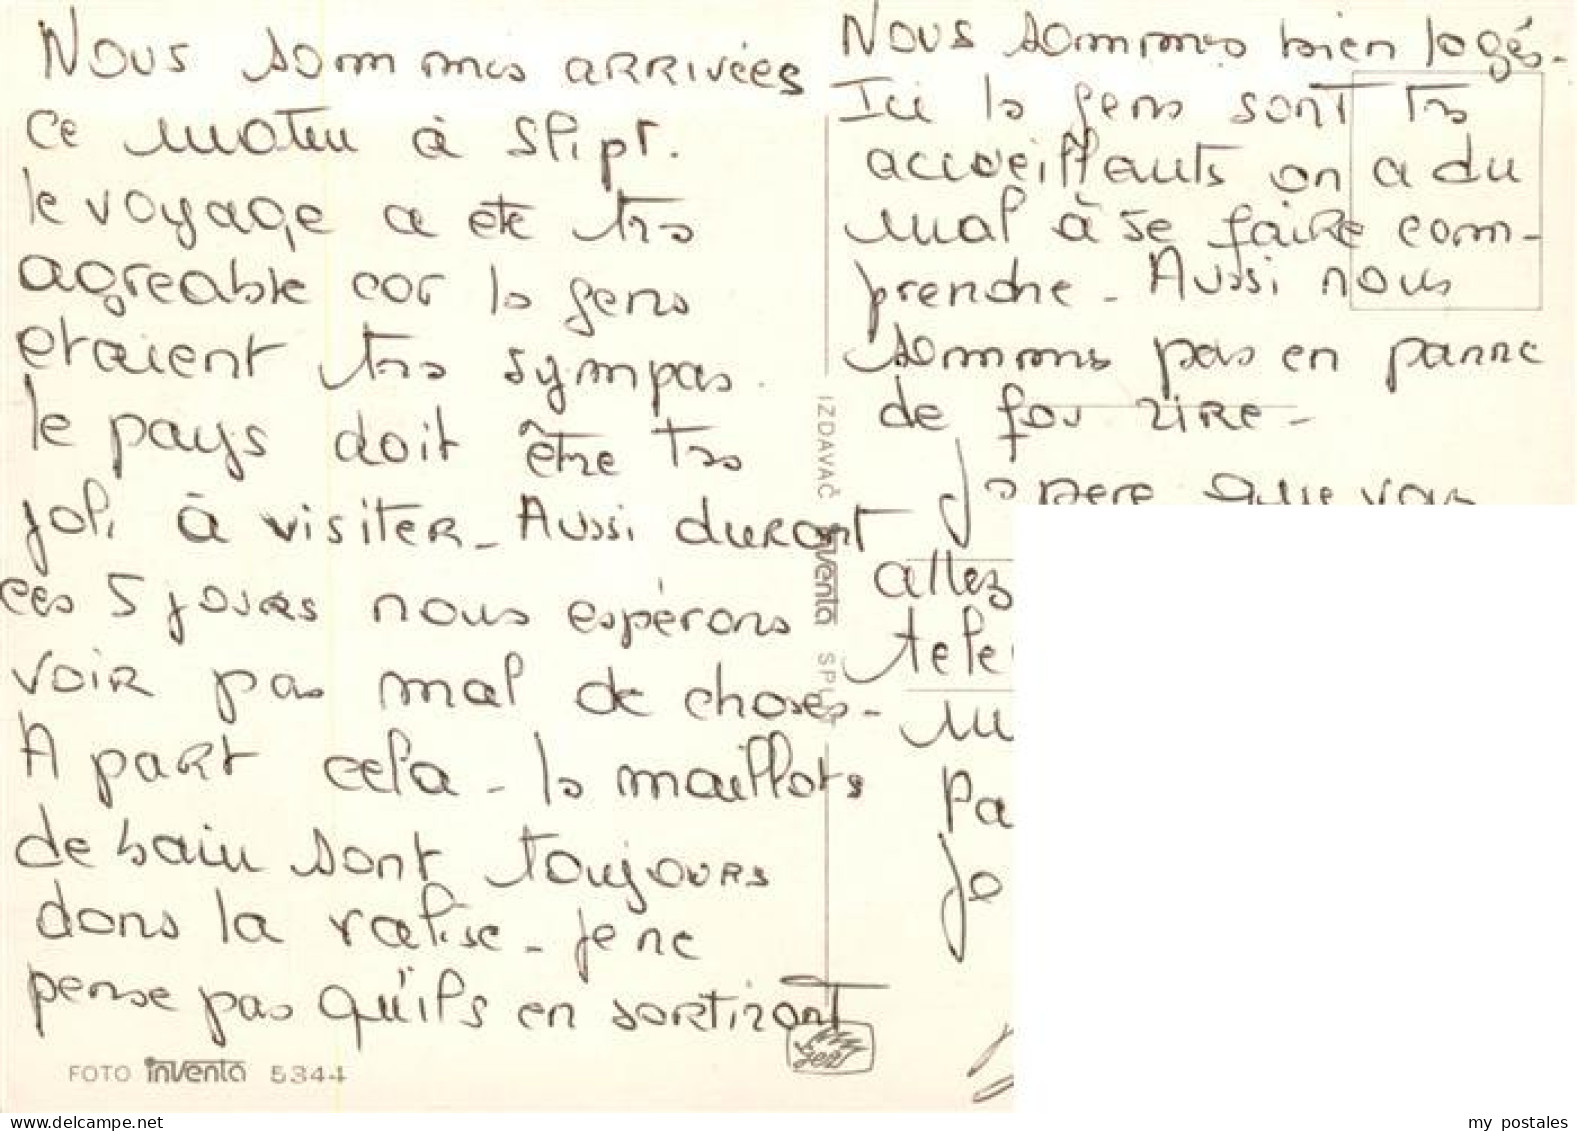 Nous sommes arrivées
ce matin à Split.
le voyage a ete très
agreable car les gens
etaient très sympas.
le pays doit être très
joli à visiter - Aussi durant
ces 5 jours nous espérons
voir pas mal de choses -
A part cela - les maillots
de bain sont toujours
dans la valise - je ne
pense pas qu'ils en sortiront
FOTO inventa 5344
IZDAVAČ inventa SPLIT
Nous sommes bien logés -
Ici les gens sont très
accueillants on a du
mal à se faire com-
prendre - Aussi nous
sommes pas en panne
de fou rire -
J'espere que vous
allez
tele
Pa
Jo
my postales